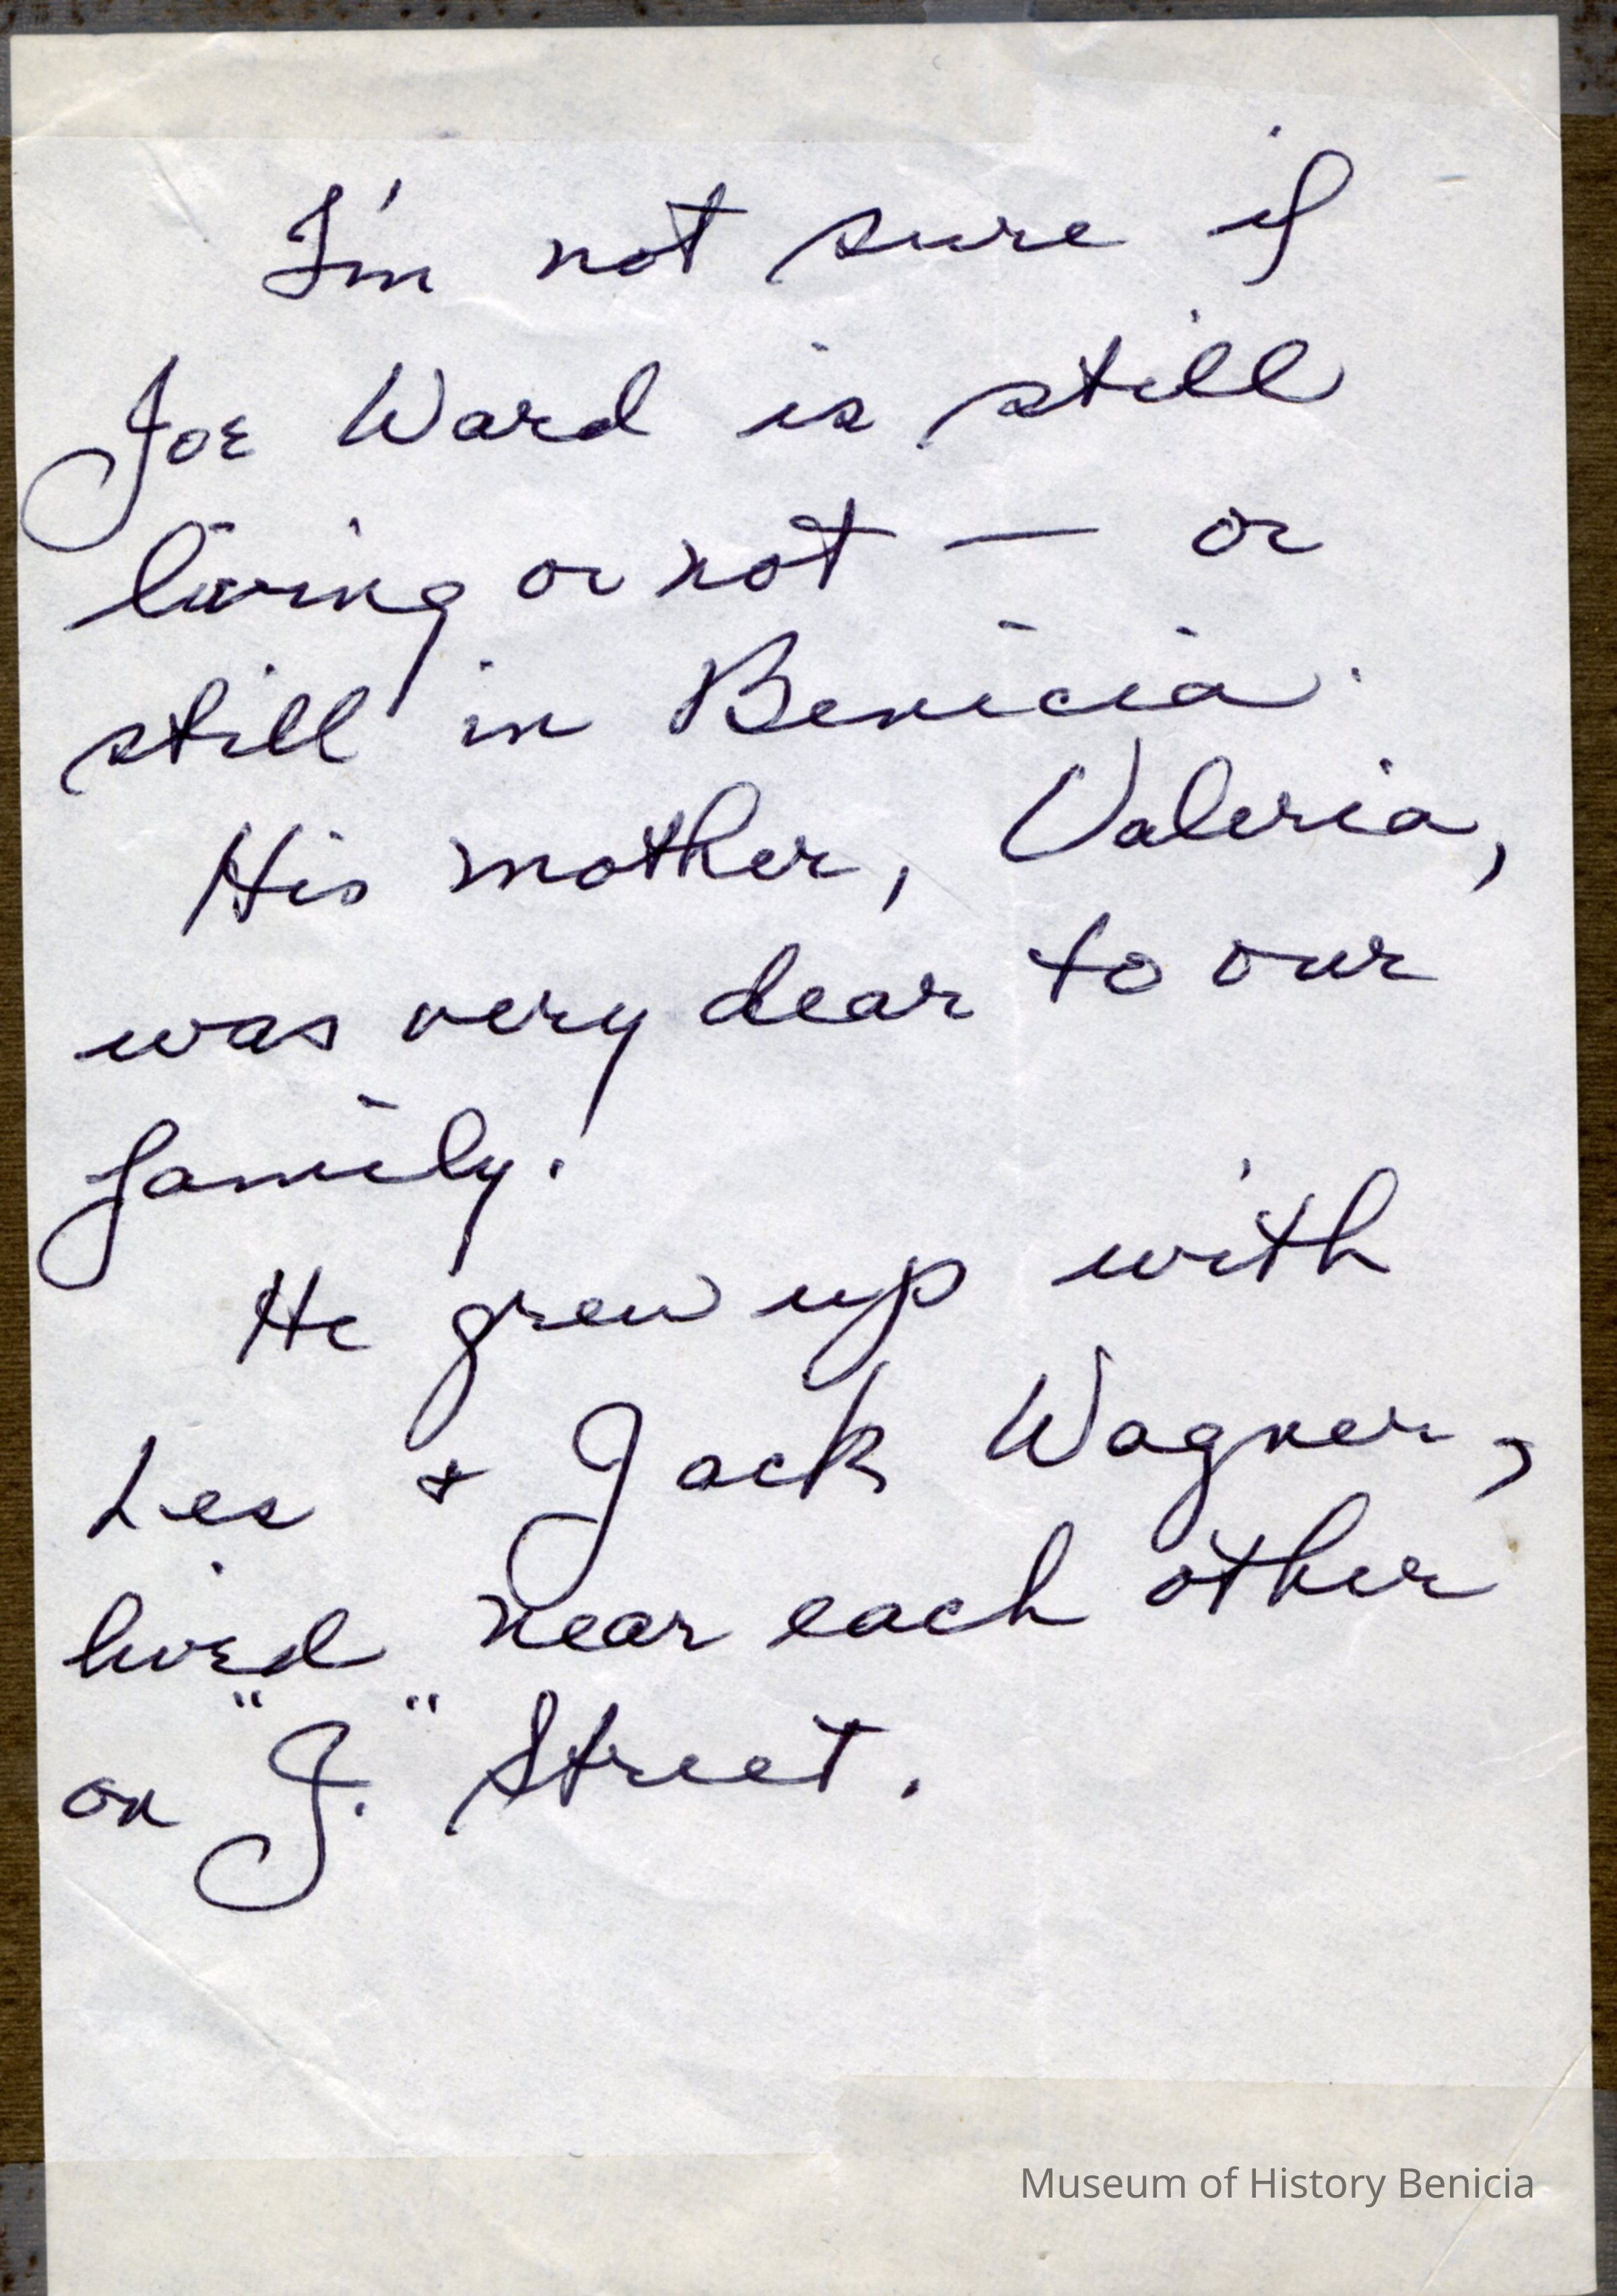 I'm not sure if
Joe Ward is still
living or not — or
still in Benicia.
His mother, Valeria,
was very dear to our
family.
He grew up with
Les & Jack Wagner,
lived near each other
on "J." Street.
Museum of History Benicia